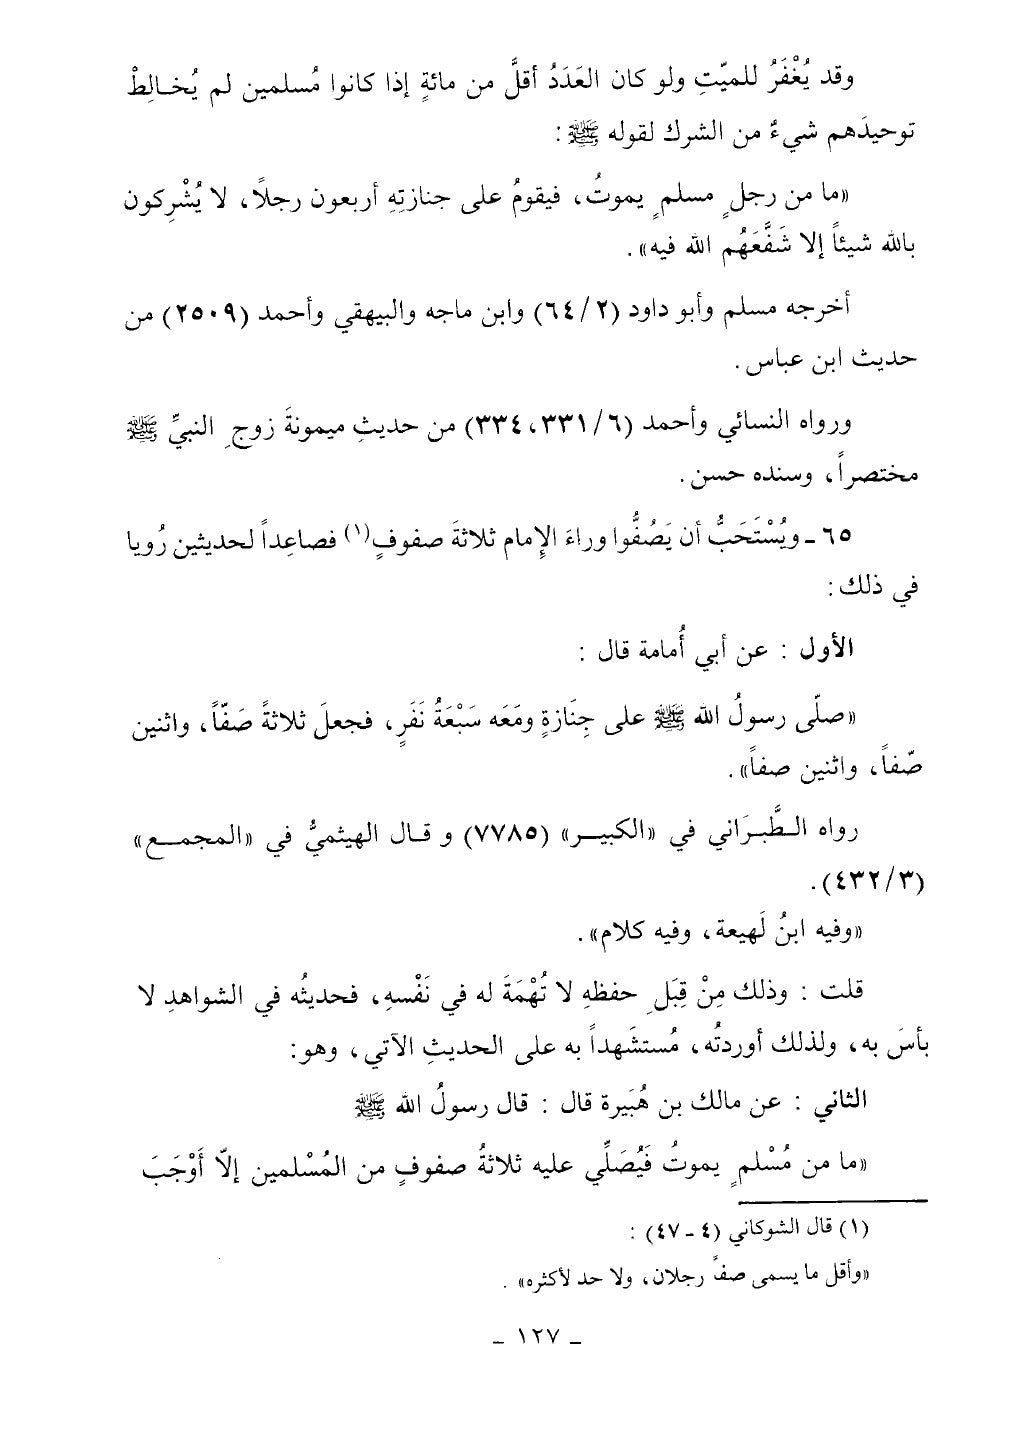 وقد يُغْفَرُ للميّتِ ولو كان العَدَدُ أقلَّ من مائةٍ إذا كانوا مُسلمين لم يُخـالِطْ
توحيدَهم شيءٌ من الشرك لقوله ﷺ :
«ما من رجلٍ مسلمٍ يموتُ، فيقومُ على جنازتِهِ أربعون رجلاً، لا يُشْرِكون
بالله شيئاً إلا شَفَّعَهُم الله فيه» .
أخرجه مسلم وأبو داود (٢/ ٦٤) وابن ماجه والبيهقي وأحمد (٢٥٠٩) من
حديث ابن عباس .
ورواه النسائي وأحمد (٦/ ٣٣١، ٣٣٤) من حديثِ ميمونةَ زوجِ النبيِّ ﷺ
مختصراً، وسنده حسن .
٦٥ ـ ويُسْتَحَبُّ أن يَصُفُّوا وراءَ الإِمام ثلاثةَ صفوفٍ(١) فصاعِداً لحديثين رُويا
في ذلك :
الأول : عن أبي أُمامة قال :
«صلّى رسولُ الله ﷺ على جِنَازةٍ ومَعَه سَبْعَةُ نَفَرٍ، فجعلَ ثلاثةً صَفّاً، واثنين
صّفاً، واثنين صفاً» .
رواه الـطَّبـرَاني في «الكبيـــر» (٧٧٨٥) و قـال الهيثميُّ في «المجمـــع»
(٣/ ٤٣٢) .
«وفيه ابنُ لَهيعة، وفيه كلام» .
قلت : وذلك مِنْ قِبَلِ حفظهِ لا تُهْمَةَ له في نَفْسهِ، فحديثُه في الشواهدِ لا
بأسَ به، ولذلك أوردتُه، مُستشَهداً به على الحديثِ الآتي، وهو :
الثاني : عن مالك بن هُبَيرة قال : قال رسولُ الله ﷺ
«ما من مُسْلمٍ يموتُ فَيُصَلِّي عليه ثلاثةُ صفوفٍ من المُسْلمين إلّا أَوْجَبَ
(١) قال الشوكاني (٤ ـ ٤٧) :
«وأقل ما يسمى صفاً رجلان، ولا حد لأكثره» .
ـ ١٢٧ ـ